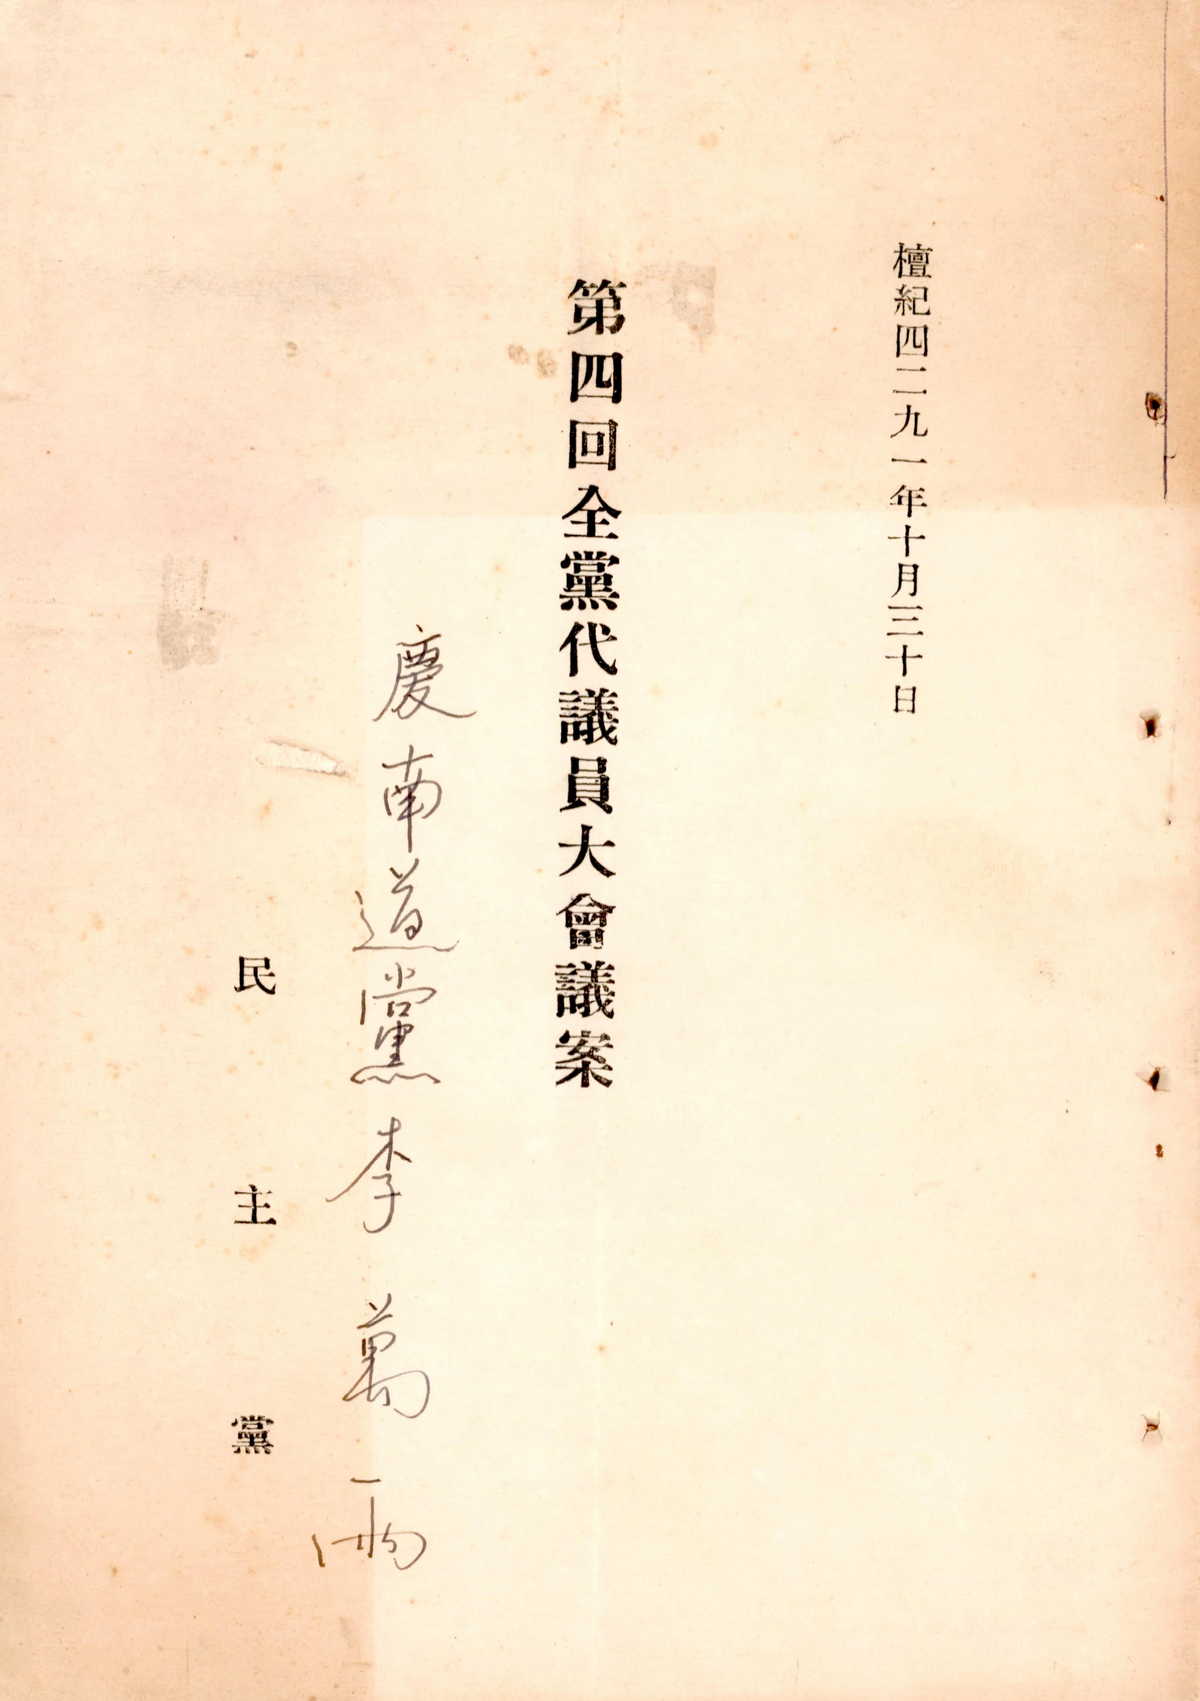 檀紀四二九一年十月三十日
第四回全黨代議員大會議案
慶南道黨 李萬雨
民主黨